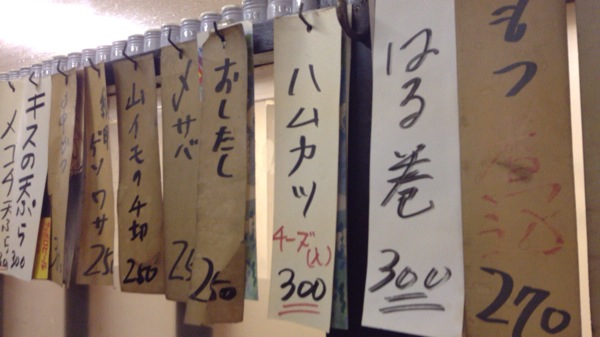 もつ
270
はる巻
300
ハムカツ
チーズ(入)
300
おしたし
250
〆サバ
25
山イモの千切
250
ゲソワサ
250
キスの天ぷら
300
メゴチ天ぷら